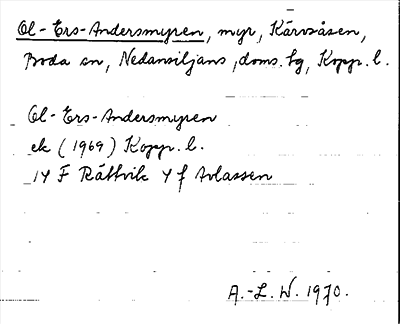 Ol-Ers-Andersmyren, myr, Kärvsåsen,
Boda sn, Nedansiljans, doms. tg, Kopp. l.
Ol-Ers-Andersmyren
ek (1969) Kopp. l.
14 F Rättvik 4 f Avlassen
A.-L. W. 1970.